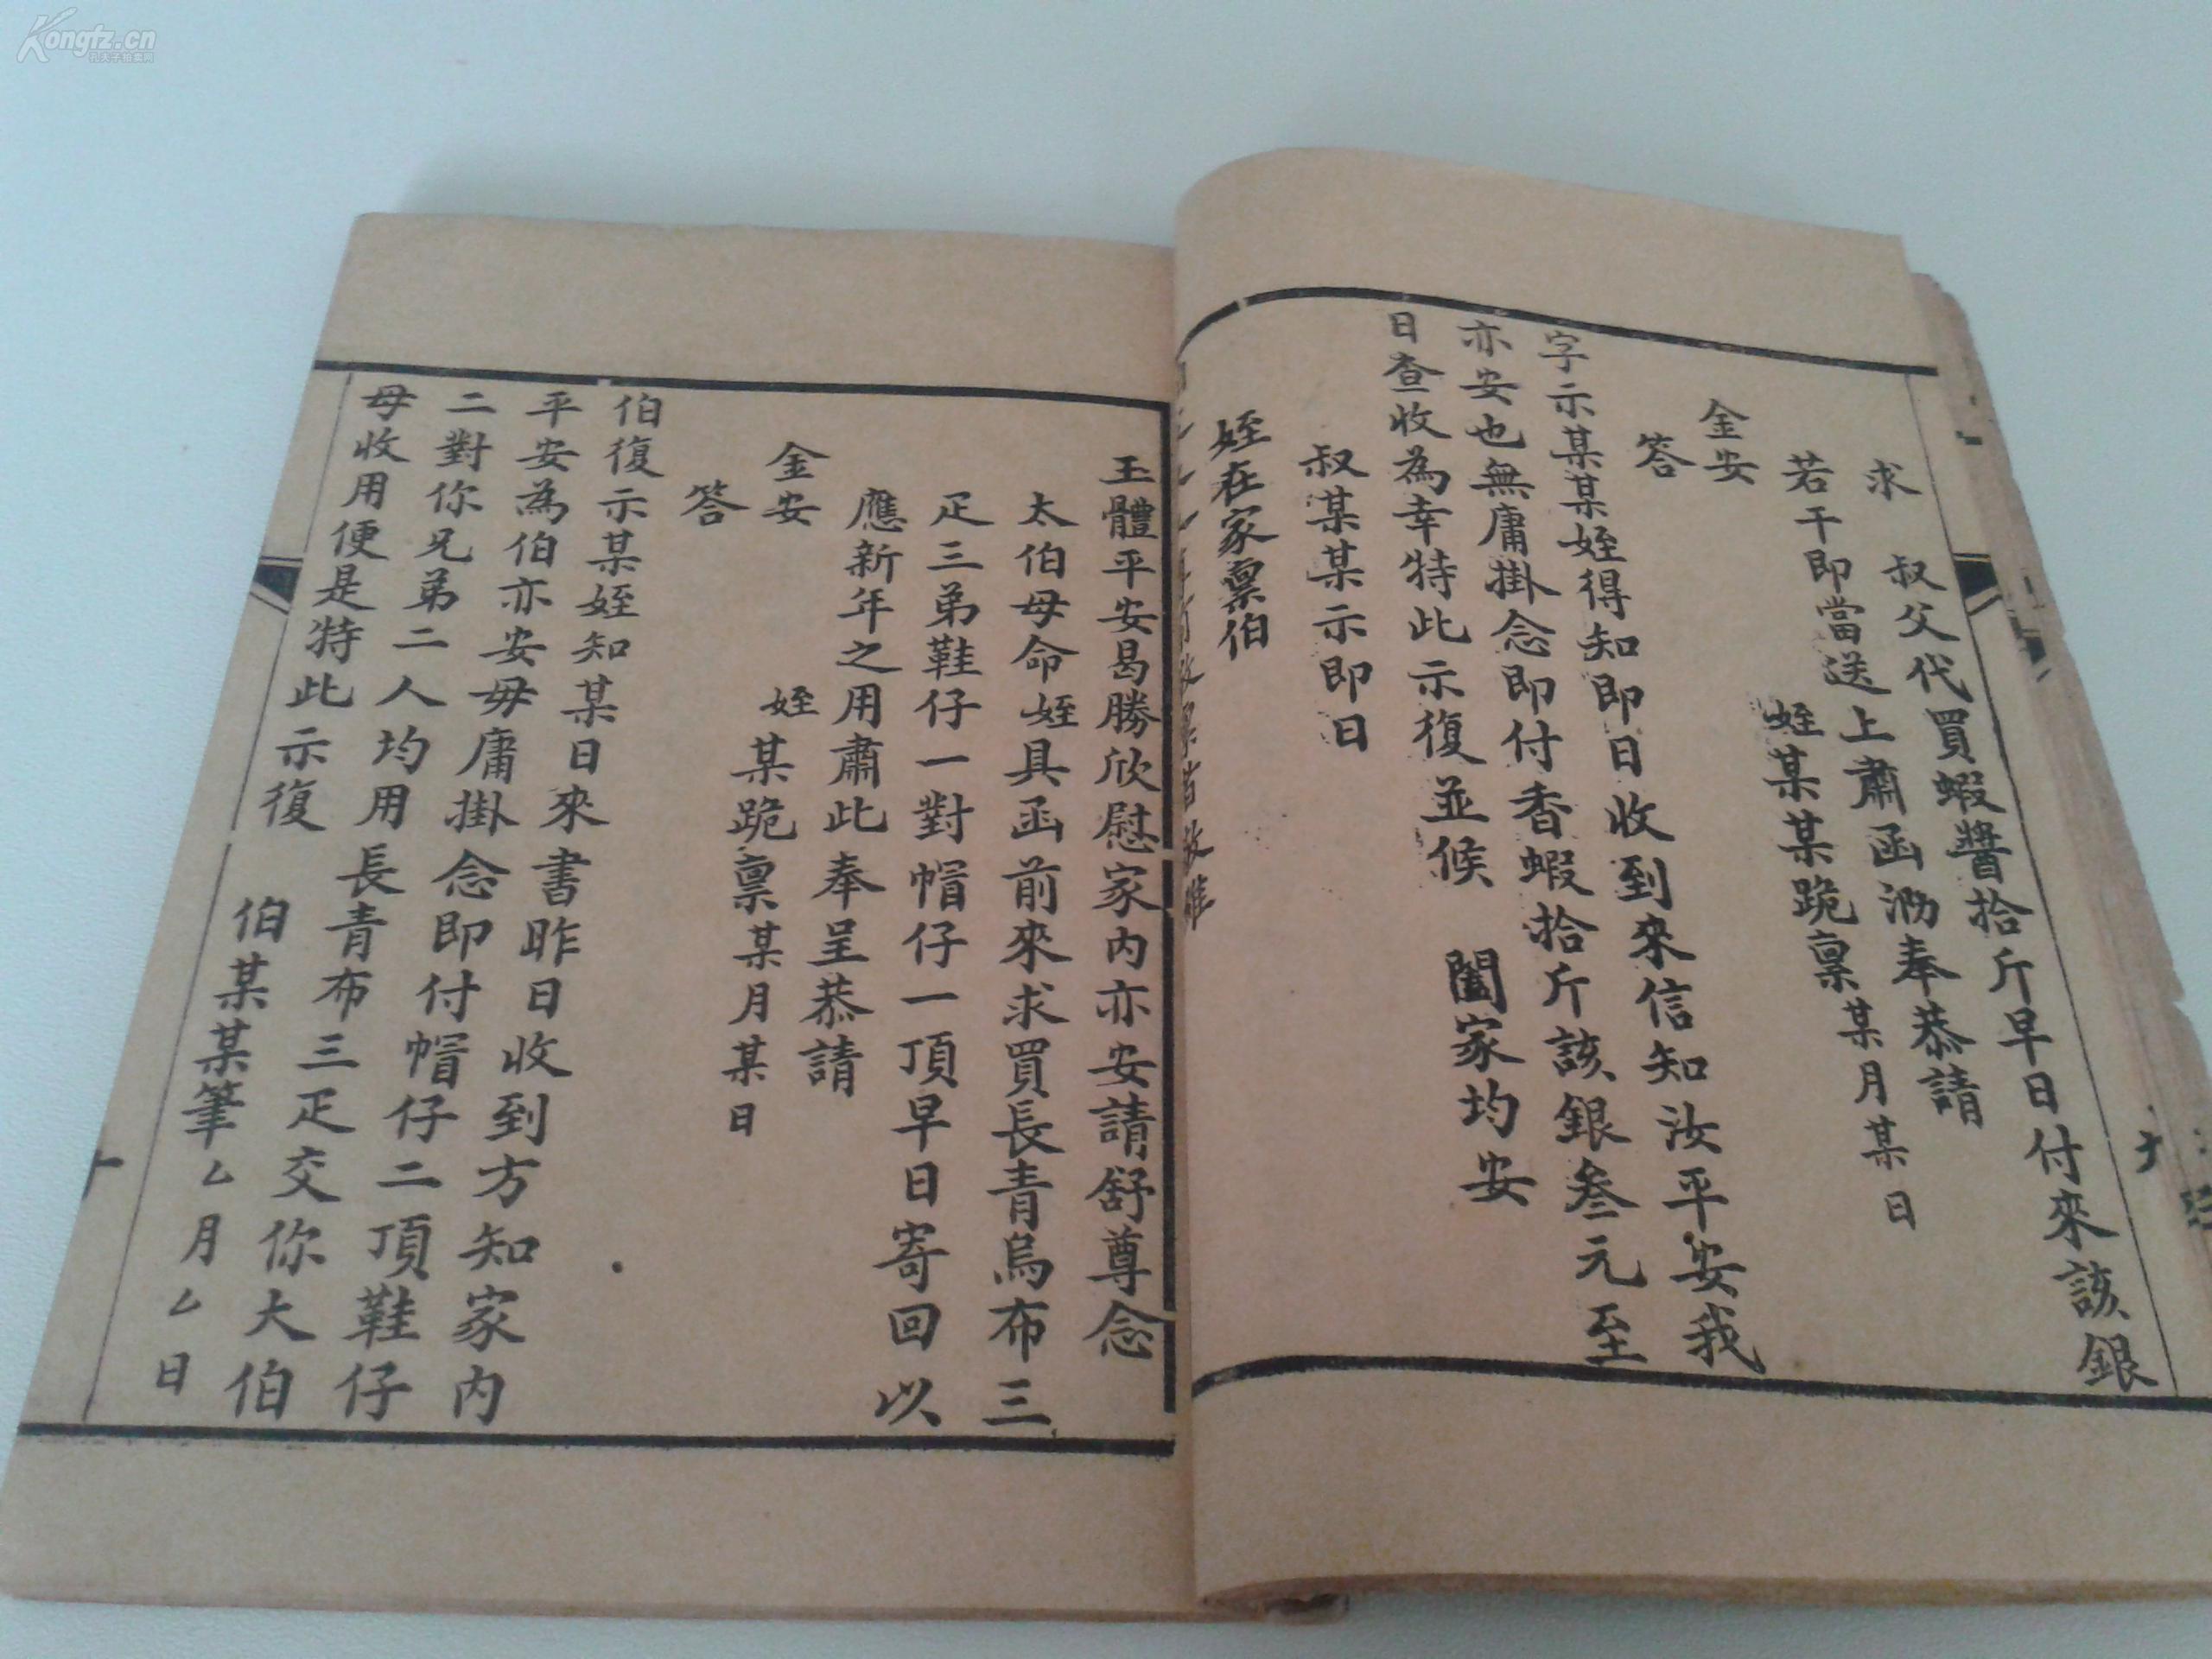 求 叔父代買蝦醬拾斤早日付來該銀
若干即當送上肅函泐奉恭請
金安
姪某某跪稟某月某日
答
字示某某姪得知即日收到來信知汝平安我
亦安也無庸掛念即付香蝦拾斤該銀叁元至
日查收為幸特此示復並候 闔家均安
叔某某示即日
姪在家稟伯
玉體平安曷勝欣慰家內亦安請舒尊念
太伯母命姪具函前來求買長青烏布三
疋三弟鞋仔一對帽仔一頂早日寄回以
應新年之用肅此奉呈恭請
金安
姪某跪稟某月某日
答
伯復示某姪知某日來書昨日收到方知家內
平安為伯亦安毋庸掛念即付帽仔二頂鞋仔
二對你兄弟二人均用長青布三疋交你大伯
母收用便是特此示復
伯某某筆厶月厶日
Kongfz.cn